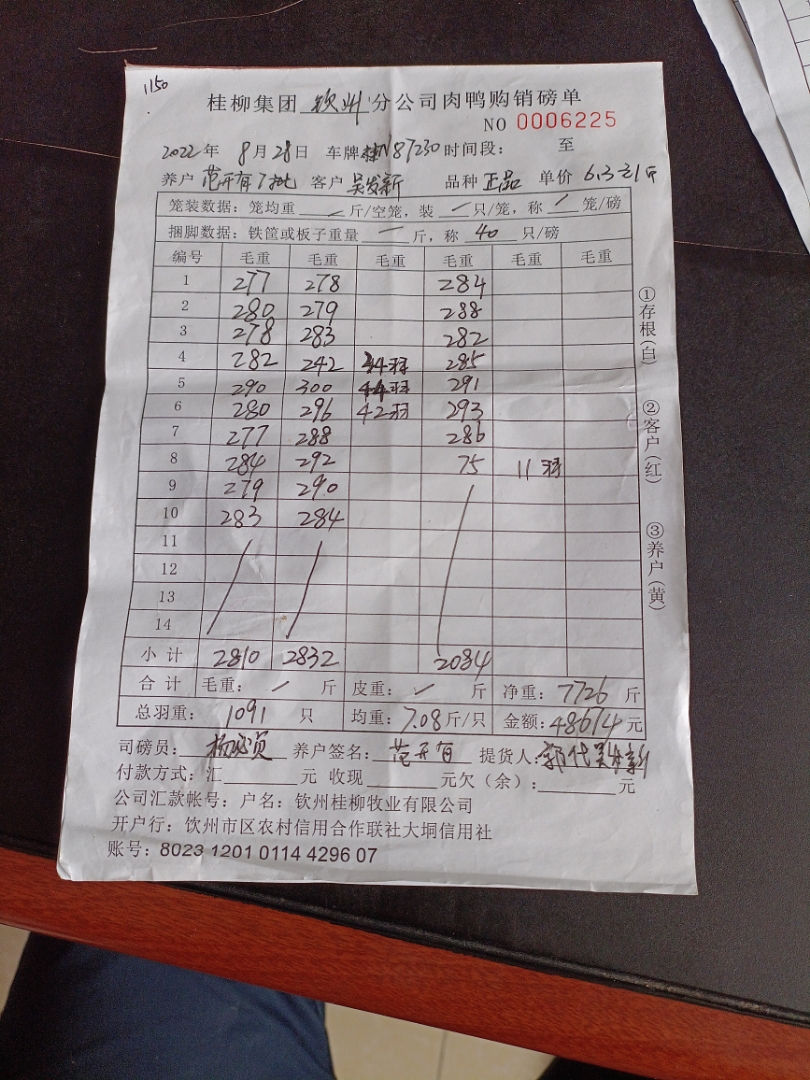 1150
桂柳集团 钦州 分公司肉鸭购销磅单
NO 0006225
2022年 8月28日 车牌 N87230 时间段： 至
养户 范开有7批 客户 吴发新 品种 正品 单价 6.3元/斤
笼装数据：笼均重 / 斤/空笼，装 / 只/笼，称 / 笼/磅
捆脚数据：铁筐或板子重量 一 斤，称 40 只/磅
编号 毛重 毛重 毛重 毛重 毛重 毛重
1 277 278 284
2 280 279 288
3 278 283 282
4 282 242 34羽 285
5 290 300 44羽 291
6 280 296 42羽 293
7 277 288 286
8 284 292 75 11羽
9 279 290
10 283 284
11
12
13
14
小计 2810 2832 2084
合计 毛重： / 斤 皮重： / 斤 净重：7726 斤
总羽重： 1091 只 均重：7.08斤/只 金额：48674元
①存根（白）
②客户（红）
③养户（黄）
司磅员： 养户签名：范开有 提货人：
付款方式：汇 元 收现 元欠（余）： 元
公司汇款帐号：户名：钦州桂柳牧业有限公司
开户行：钦州市区农村信用合作联社大垌信用社
账号：8023 1201 0114 4296 07